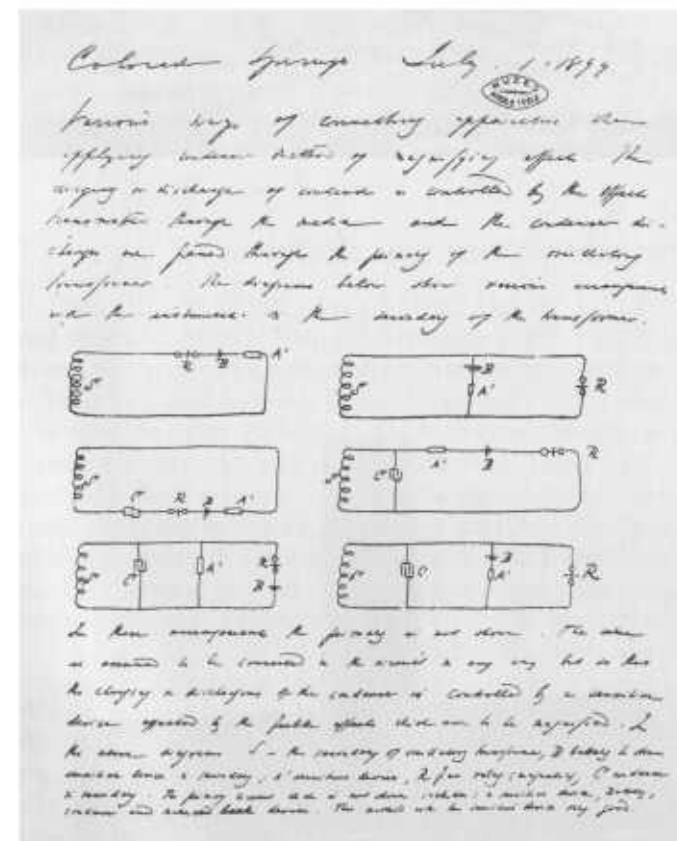 Colorado Springs July. 1. 1899
Various ways of connecting apparatus when
applying condenser method of magnifying effects. The
charging or discharge of condenser is controlled by the effects
transmitted through the media and the condenser dis-
charges are passed through the primary of the oscillating
transformer. The diagrams below show various arrangements
with the instruments in the secondary of the transformer.
S R B A'
S B A' R
S C R B A'
S C A' B R
S C A' R B
S C B A' R
In these arrangements the primary is not shown. The same
is assumed to be connected in the circuit in any way but so that
the charging or discharging of the condenser is controlled by a sensitive
device affected by the feeble effects which are to be magnified. In
the above diagrams S - the secondary of oscillating transformer, B battery
sensitive device in secondary, A' sensitive device, R relay, C condenser
in secondary. The primary circuit which is not shown includes: a sensitive device, battery,
condenser and device. The sensitive device very good.